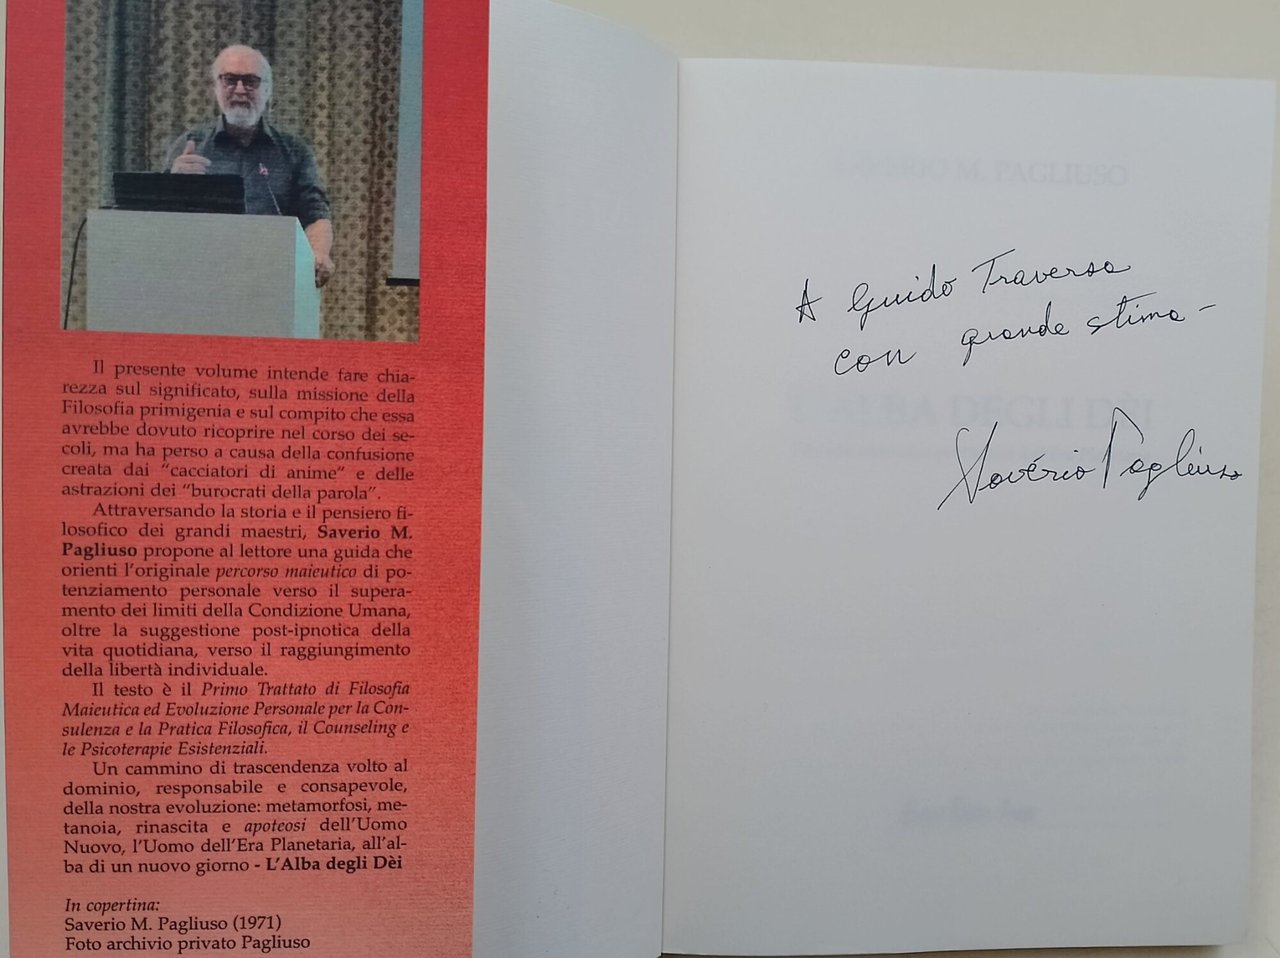 Il presente volume intende fare chia-
rezza sul significato, sulla missione della
Filosofia primigenia e sul compito che essa
avrebbe dovuto ricoprire nel corso dei se-
coli, ma ha perso a causa della confusione
creata dai “cacciatori di anime” e delle
astrazioni dei “burocrati della parola”.
Attraversando la storia e il pensiero fi-
losofico dei grandi maestri, Saverio M.
Pagliuso propone al lettore una guida che
orienti l’originale percorso maieutico di po-
tenziamento personale verso il supera-
mento dei limiti della Condizione Umana,
oltre la suggestione post-ipnotica della
vita quotidiana, verso il raggiungimento
della libertà individuale.
Il testo è il Primo Trattato di Filosofia
Maieutica ed Evoluzione Personale per la Con-
sulenza e la Pratica Filosofica, il Counseling e
le Psicoterapie Esistenziali.
Un cammino di trascendenza volto al
dominio, responsabile e consapevole,
della nostra evoluzione: metamorfosi, me-
tanoia, rinascita e apoteosi dell’Uomo
Nuovo, l’Uomo dell’Era Planetaria, all’al-
ba di un nuovo giorno - L’Alba degli Dèi
In copertina:
Saverio M. Pagliuso (1971)
Foto archivio privato Pagliuso
SAVERIO M. PAGLIUSO
A Guido Traversa
con grande stima -
L'ALBA DEGLI DÈI
Savério Pagliuso